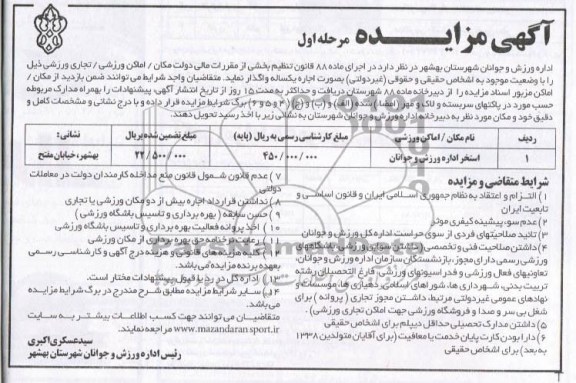 آگهی مزایــــده مرحله اول
اداره ورزش و جوانان شهرستان بهشهر در نظر دارد در اجرای ماده ۸۸ قانون تنظیم بخشی از مقررات مالی دولت مکان / اماکن ورزشی / تجاری ورزشی ذیل
را با وضعیت موجود به اشخاص حقیقی و حقوقی (غیردولتی) بصورت اجاره یکساله واگذار نماید. متقاضیان واجد شرایط می توانند ضمن بازدید از مکان /
اماکن مزبور اسناد مزایده را از دبیرخانه ماده ۸۸ شهرستان دریافت و حداکثر به مدت ۱۵ روز از تاریخ انتشار آگهی، پیشنهادات را بهمراه مدارک مربوطه
حسب مورد در پاکتهای سربسته و لاک و مهر (امضا) شده (الف) و (ب) و (ج) (۴ و ۵ و ۶) برگ شرایط مزایده قرار داده و با درج نشانی و مشخصات کامل و
دقیق خود و مکان مورد نظر به دبیرخانه اداره ورزش و جوانان شهرستان به نشانی زیر با اخذ رسید تحویل دهند.
ردیف نام مکان / اماکن ورزشی مبلغ کارشناسی رسمی به ریال (پایه) مبلغ تضمین شده بریال نشانی:
۱ استخر اداره ورزش و جوانان ۴۵۰/۰۰۰/۰۰۰ ۲۲/۵۰۰/۰۰۰ بهشهر، خیابان مفتح
شرایط متقاضی و مزایده
۱) التزام و اعتقاد به نظام جمهوری اسلامی ایران و قانون اساسی و
تابعیت ایران
۲) عدم سوء پیشینه کیفری موثر
۳) تائید صلاحیتهای فردی از سوی حراست اداره کل ورزش و جوانان
۴) داشتن صلاحیت فنی و تخصصی
ورزشی رسمی دارای مجوز، بازنشستگان سازمان اداره ورزش و جوانان،
تعاونیهای فعال ورزشی و فدراسیونهای ورزشی، فارغ التحصیلان رشته
تربیت بدنی، شهرداری ها، شوراهای اسلامی، دهیاری ها، موسسات و
نهادهای عمومی غیردولتی مرتبط، داشتن مجوز تجاری (پروانه) برای
شغل بی سر و صدا و فروشگاه ورزشی جهت اماکن تجاری ورزشی).
۵) داشتن مدارک تحصیلی حداقل دیپلم برای اشخاص حقیقی
۶) دارا بودن کارت پایان خدمت یا معافیت (برای آقایان متولدین ۱۳۳۸
به بعد) برای اشخاص حقیقی
۷) عدم قانون شمول قانون منع مداخله کارمندان دولت در معاملات
دولتی
۸) نداشتن قرارداد اجاره بیش از دو مکان ورزشی یا تجاری
۹) حسن سابقه (بهره برداری و تاسیس باشگاه ورزشی)
۱۰) اخذ پروانه فعالیت بهره برداری و تاسیس باشگاه ورزشی
بهره برداری از مکان ورزشی
۱۲) کلیه هزینه های قانونی و هزینه درج آگهی و کارشناسی رسمی
بعهده برنده مزایده می باشد.
۱۳) اداره کل در رد یا قبول پیشنهادات مختار است.
۱۴) سایر شرایط مزایده مطابق شرح مندرج در برگ شرایط مزایده
می باشد.
متقاضیان می توانند جهت کسب اطلاعات بیشتر به سایت
www.mazandaransport.ir مراجعه نمایند.
سید عسکری اکبری
رئیس اداره ورزش و جوانان شهرستان بهشهر